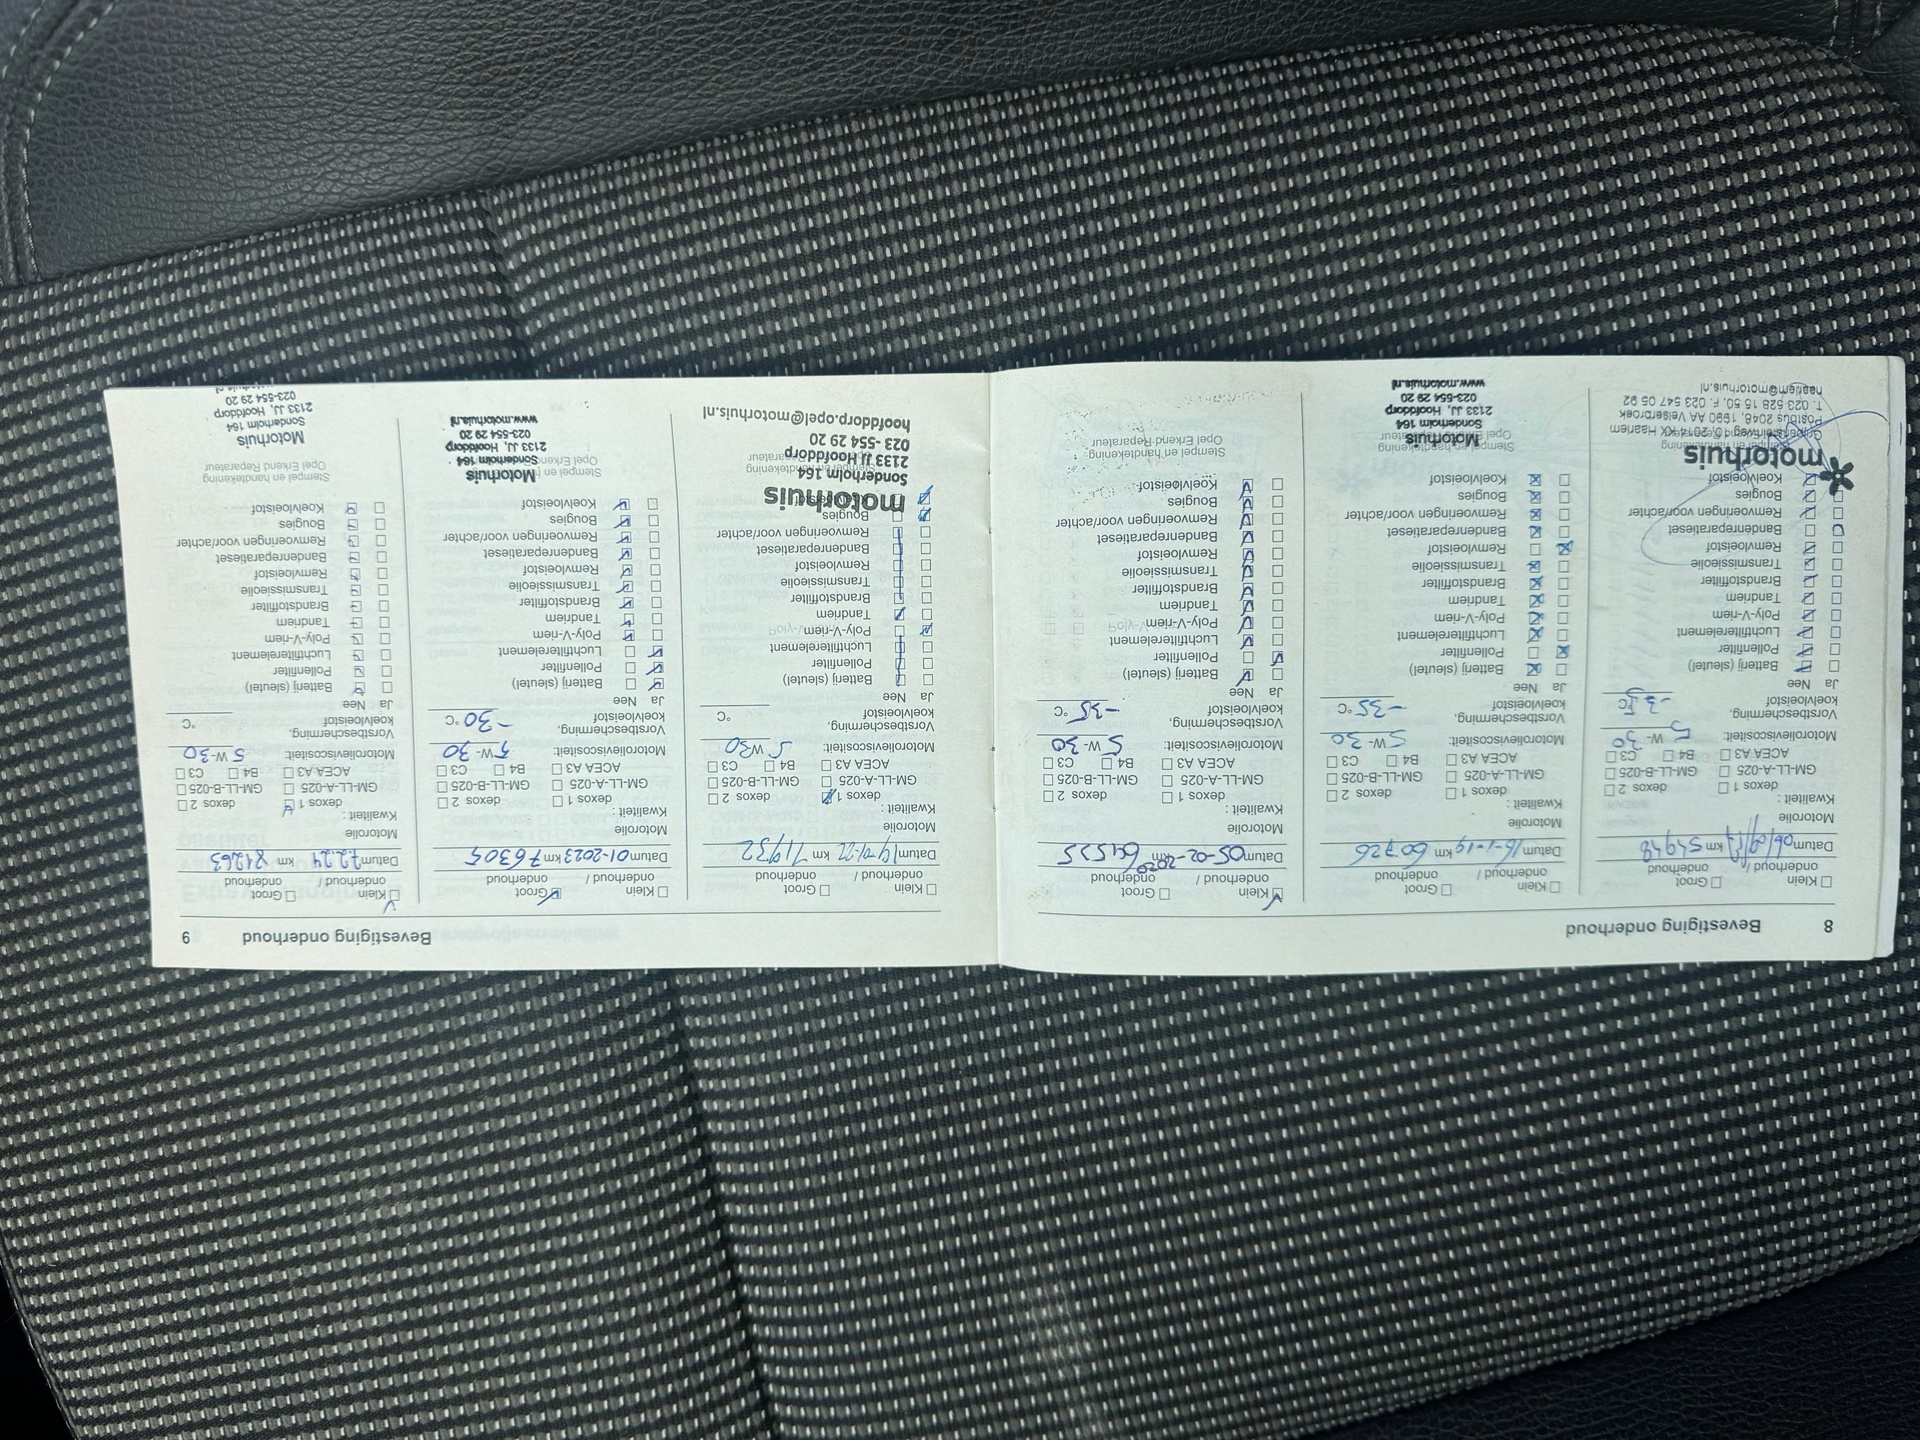 8 Bevestiging onderhoud
☐ Klein ☐ Groot
onderhoud / onderhoud
Datum km 54948
Motorolie
Kwaliteit :
☐ dexos 1 ☐ dexos 2
☐ GM-LL-A-025 ☐ GM-LL-B-025
☐ ACEA A3 ☐ B4 ☐ C3
Motorolieviscositeit: 5 W-30
Vorstbescherming,
koelvloeistof -35 °C
Ja Nee
Batterij (sleutel)
Pollenfilter
Luchtfilterelement
Poly-V-riem
Tandriem
Brandstoffilter
Transmissieolie
Remvloeistof
Bandenreparatieset
Remvoeringen voor/achter
Bougies
Koelvloeistof
motorhuis
2014 KX Haarlem
Postbus 2048, 1990 AA Velserbroek
T. 023 528 15 50, F. 023 547 05 92
haarlem@motorhuis.nl
☐ Klein ☐ Groot
onderhoud / onderhoud
Datum 16-1-19 km 60726
Motorolie
Kwaliteit :
☐ dexos 1 ☐ dexos 2
☐ GM-LL-A-025 ☐ GM-LL-B-025
☐ ACEA A3 ☐ B4 ☐ C3
Motorolieviscositeit: 5 W-30
Vorstbescherming,
koelvloeistof -35 °C
Ja Nee
Batterij (sleutel)
Pollenfilter
Luchtfilterelement
Poly-V-riem
Tandriem
Brandstoffilter
Transmissieolie
Remvloeistof
Bandenreparatieset
Remvoeringen voor/achter
Bougies
Koelvloeistof
Stempel en handtekening
Opel Erkend Reparateur
Motorhuis
Sonderholm 164
2133 JJ, Hoofddorp
023-554 29 20
www.motorhuis.nl
☑ Klein ☐ Groot
onderhoud / onderhoud
Datum 05-02-2020 km 64535
Motorolie
Kwaliteit :
☐ dexos 1 ☐ dexos 2
☐ GM-LL-A-025 ☐ GM-LL-B-025
☐ ACEA A3 ☐ B4 ☐ C3
Motorolieviscositeit: 5 W-30
Vorstbescherming,
koelvloeistof -35 °C
Ja Nee
Batterij (sleutel)
Pollenfilter
Luchtfilterelement
Poly-V-riem
Tandriem
Brandstoffilter
Transmissieolie
Remvloeistof
Bandenreparatieset
Remvoeringen voor/achter
Bougies
Koelvloeistof
Stempel en handtekening
Opel Erkend Reparateur
Bevestiging onderhoud 9
☐ Klein ☐ Groot
onderhoud / onderhoud
Datum 14-01-22 km 71932
Motorolie
Kwaliteit :
☑ dexos 1 ☐ dexos 2
☐ GM-LL-A-025 ☐ GM-LL-B-025
☐ ACEA A3 ☐ B4 ☐ C3
Motorolieviscositeit: 5 W30
Vorstbescherming,
koelvloeistof °C
Ja Nee
Batterij (sleutel)
Pollenfilter
Luchtfilterelement
Poly-V-riem
Tandriem
Brandstoffilter
Transmissieolie
Remvloeistof
Bandenreparatieset
Remvoeringen voor/achter
Bougies
motorhuis
Sonderholm 164
2133 JJ Hoofddorp
023 - 554 29 20
hoofddorp.opel@motorhuis.nl
☐ Klein ☑ Groot
onderhoud / onderhoud
Datum 01-2023 km 76305
Motorolie
Kwaliteit :
☐ dexos 1 ☐ dexos 2
☐ GM-LL-A-025 ☐ GM-LL-B-025
☐ ACEA A3 ☐ B4 ☐ C3
Motorolieviscositeit: 5 W-30
Vorstbescherming,
koelvloeistof -30 °C
Ja Nee
Batterij (sleutel)
Pollenfilter
Luchtfilterelement
Poly-V-riem
Tandriem
Brandstoffilter
Transmissieolie
Remvloeistof
Bandenreparatieset
Remvoeringen voor/achter
Bougies
Koelvloeistof
Motorhuis
Sonderholm 164
2133 JJ, Hoofddorp
023-554 29 20
www.motorhuis.nl
☑ Klein ☐ Groot
onderhoud / onderhoud
Datum 7.2.24 km 81263
Motorolie
Kwaliteit :
☑ dexos 1 ☐ dexos 2
☐ GM-LL-A-025 ☐ GM-LL-B-025
☐ ACEA A3 ☐ B4 ☐ C3
Motorolieviscositeit: 5 W-30
Vorstbescherming,
koelvloeistof °C
Ja Nee
Batterij (sleutel)
Pollenfilter
Luchtfilterelement
Poly-V-riem
Tandriem
Brandstoffilter
Transmissieolie
Remvloeistof
Bandenreparatieset
Remvoeringen voor/achter
Bougies
Koelvloeistof
Stempel en handtekening
Opel Erkend Reparateur
Motorhuis
Sonderholm 164
2133 JJ, Hoofddorp
023-554 29 20